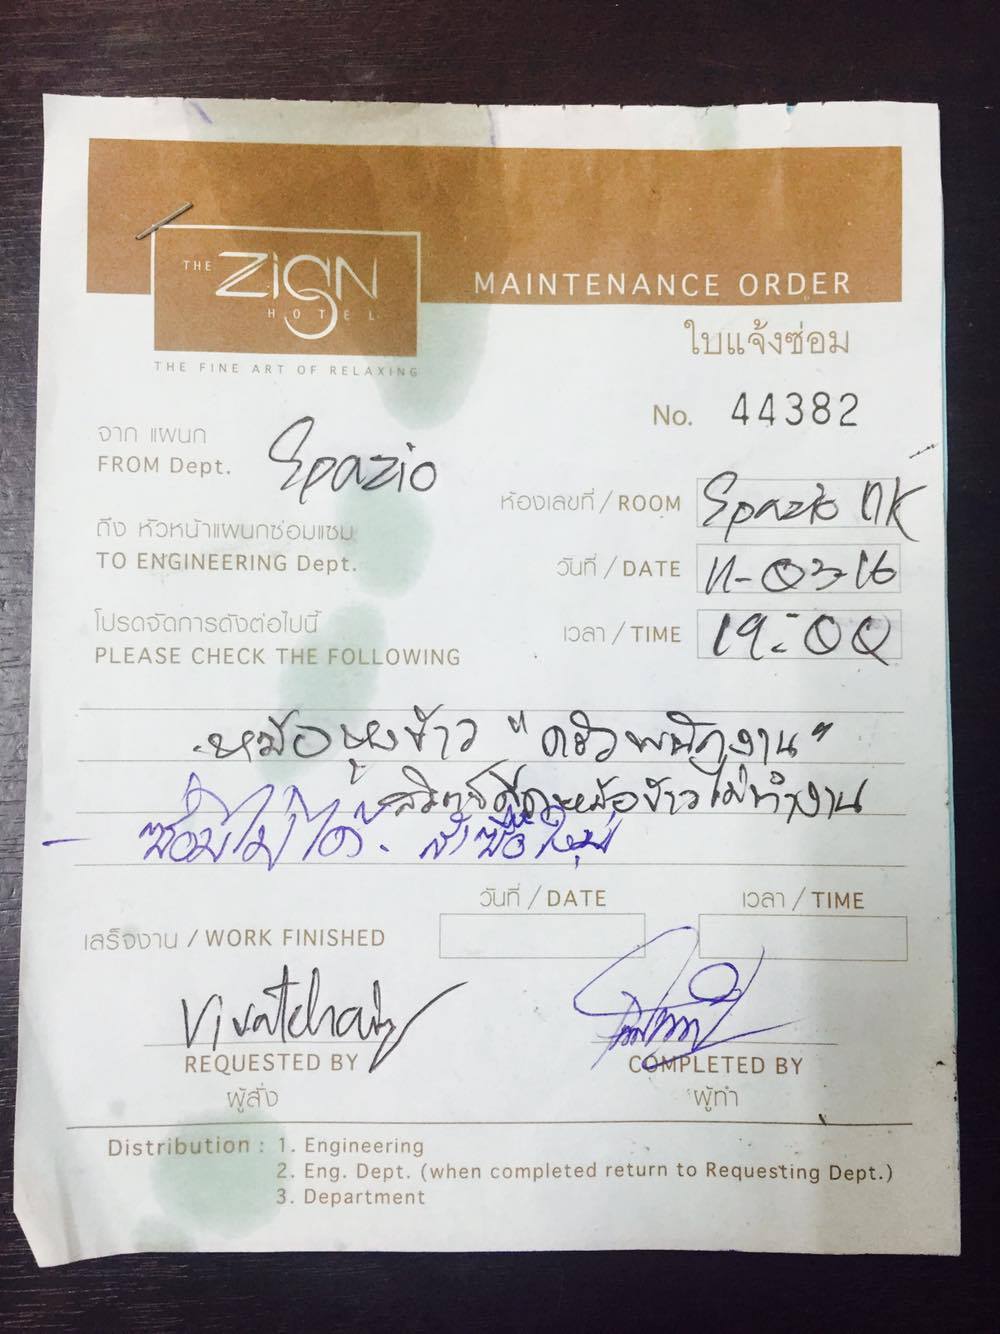 THE ZIGN
HOTEL
THE FINE ART OF RELAXING
MAINTENANCE ORDER
ใบแจ้งซ่อม
No. 44382
จาก แผนก
FROM Dept. Spazio
ห้องเลขที่ / ROOM Spazio
ถึง หัวหน้าแผนกซ่อมแซม
TO ENGINEERING Dept.
วันที่ / DATE 11-03-16
โปรดจัดการดังต่อไปนี้
PLEASE CHECK THE FOLLOWING
เวลา / TIME 19:00
หม้อหุงข้าว "ครัวพนักงาน"
หม้อข้าวไม่ทำงาน
- ซ่อมไม่ได้. สั่งซื้อใหม่
วันที่ / DATE
เวลา / TIME
เสร็จงาน / WORK FINISHED
Vivatchai
REQUESTED BY
ผู้สั่ง
COMPLETED BY
ผู้ทำ
Distribution : 1. Engineering
2. Eng. Dept. (when completed return to Requesting Dept.)
3. Department